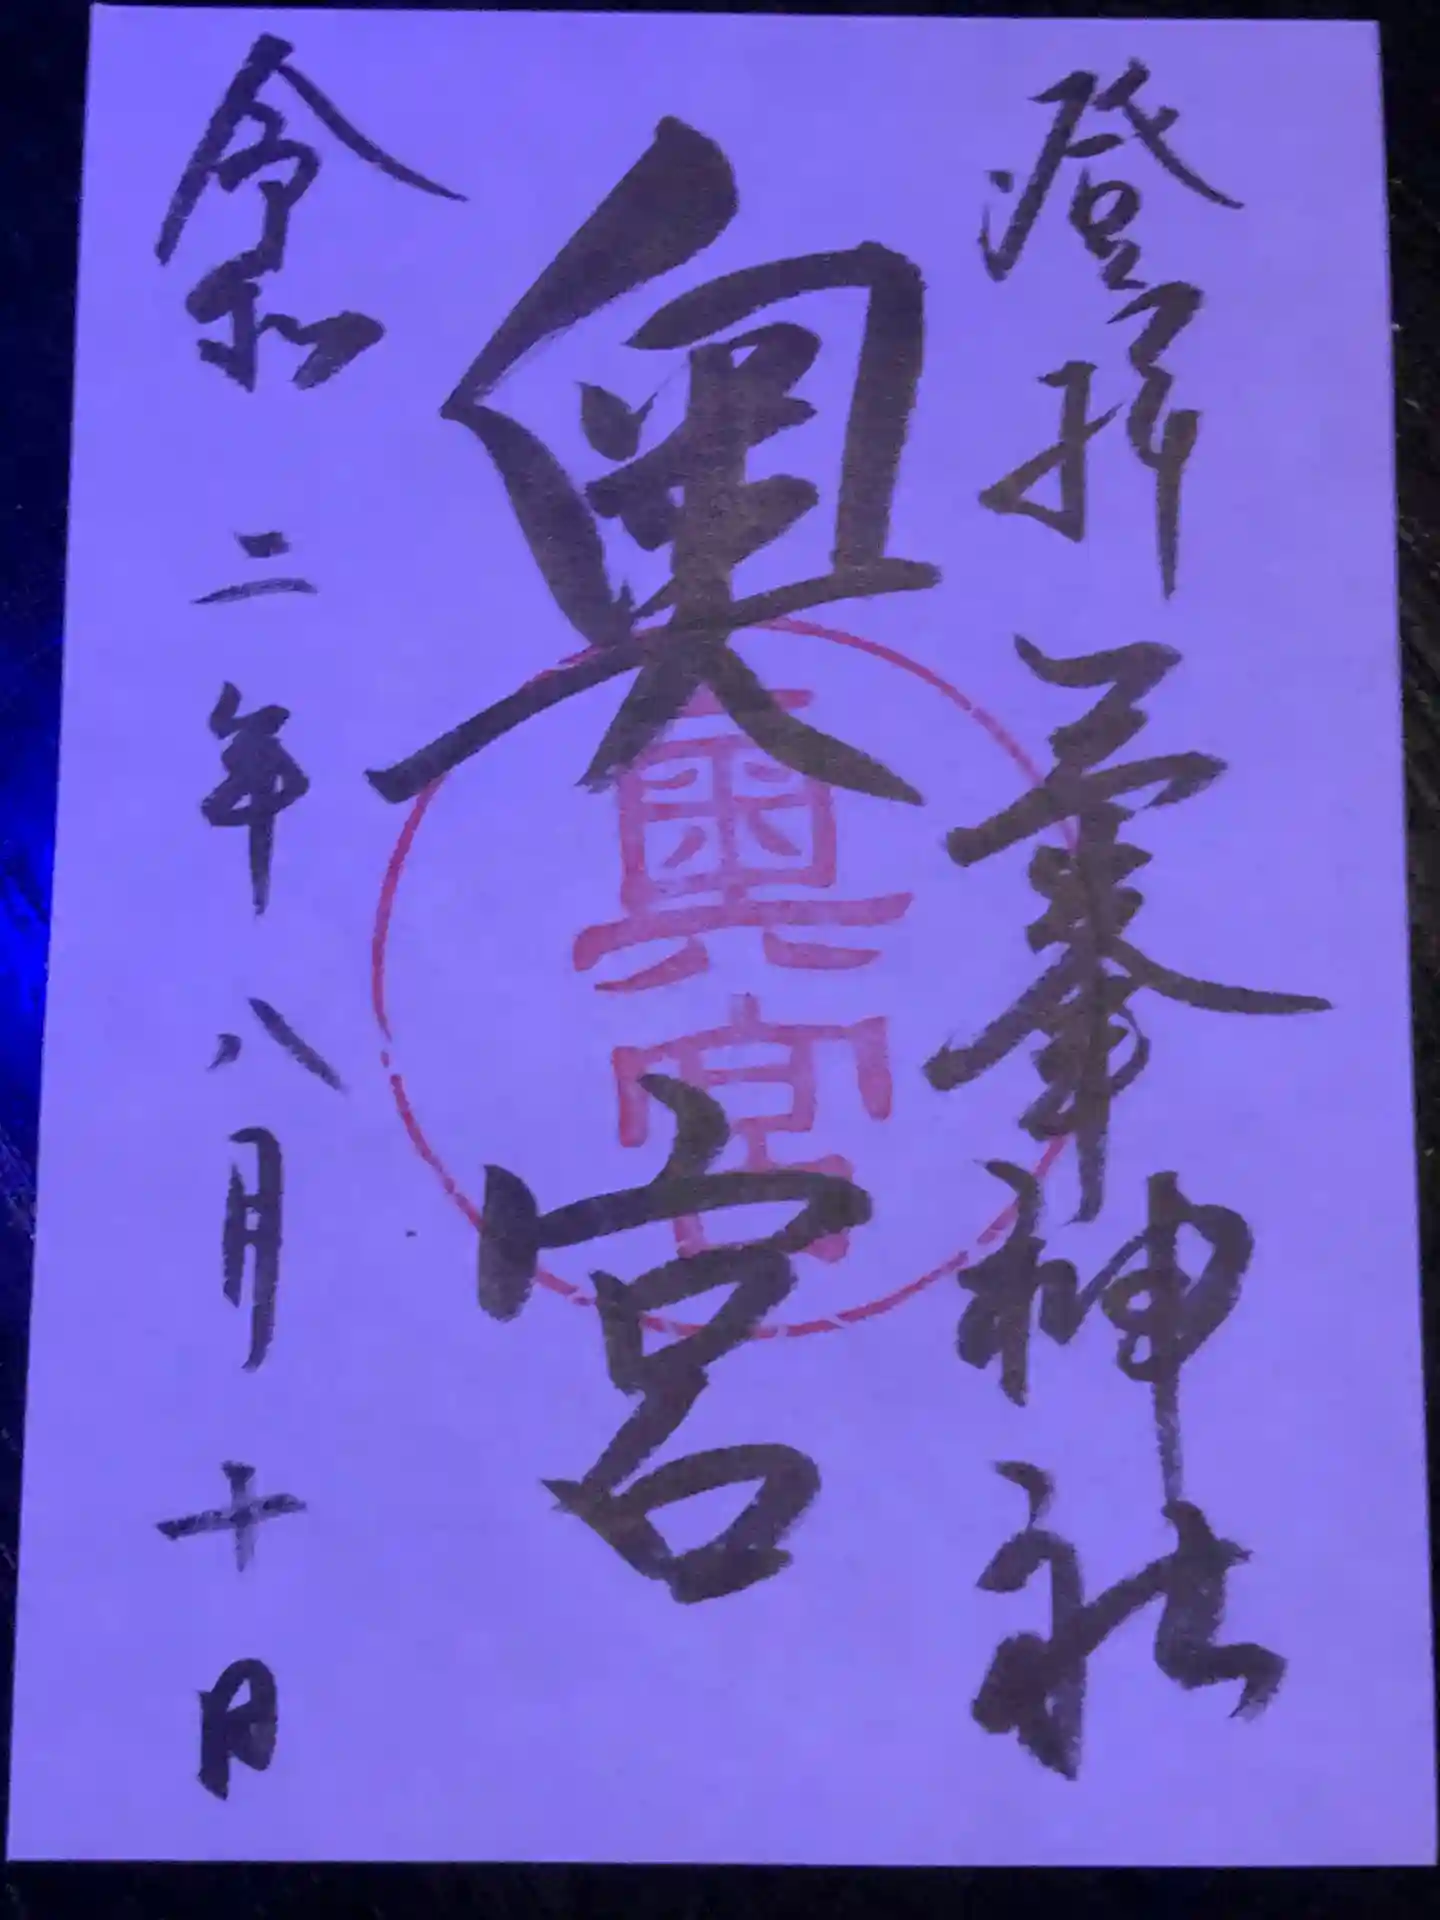 登拝三峯神社
奥宮
奥宮
令和二年八月十日